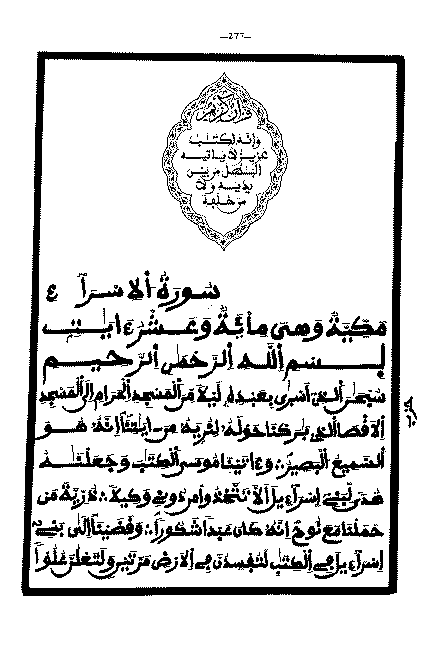 —277—
قرءان كريم
وإنه لكتب
عزيز لا ياتيه
البطل من بين
يديه ولا
من خلفه
سورة الاسراء
مكية وهي مائة وعشر ءايت
بسم الله الرحمن الرحيم
سبحن الذي أسرى بعبده ليلا من المسجد الحرام إلى المسجد
الاقصا الذي بركنا حوله لنريه من ايتنا إنه هو
السميع البصير وءاتينا موسى الكتب وجعلنه
هدى لبني إسراءيل ألا تتخذوا من دوني وكيلا ذرية من
حملنا مع نوح انه كان عبدا شكورا وقضينا إلى بني
إسراءيل في الكتب لتفسدن في الارض مرتين ولتعلن علوا
حزب